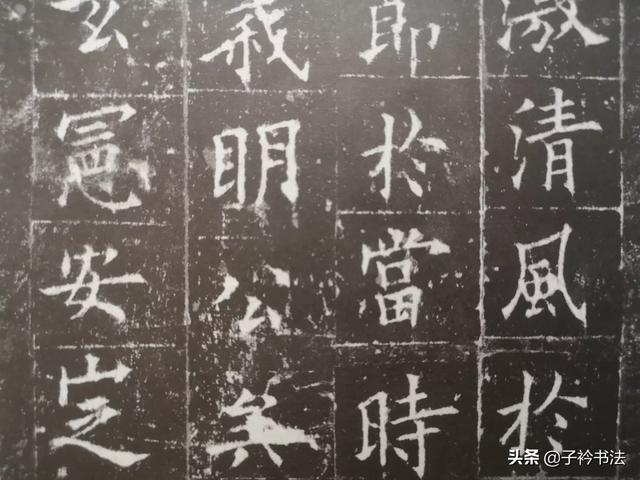 激清風於
於當時
明公矣
玄憲安定
头条 @子衿书法